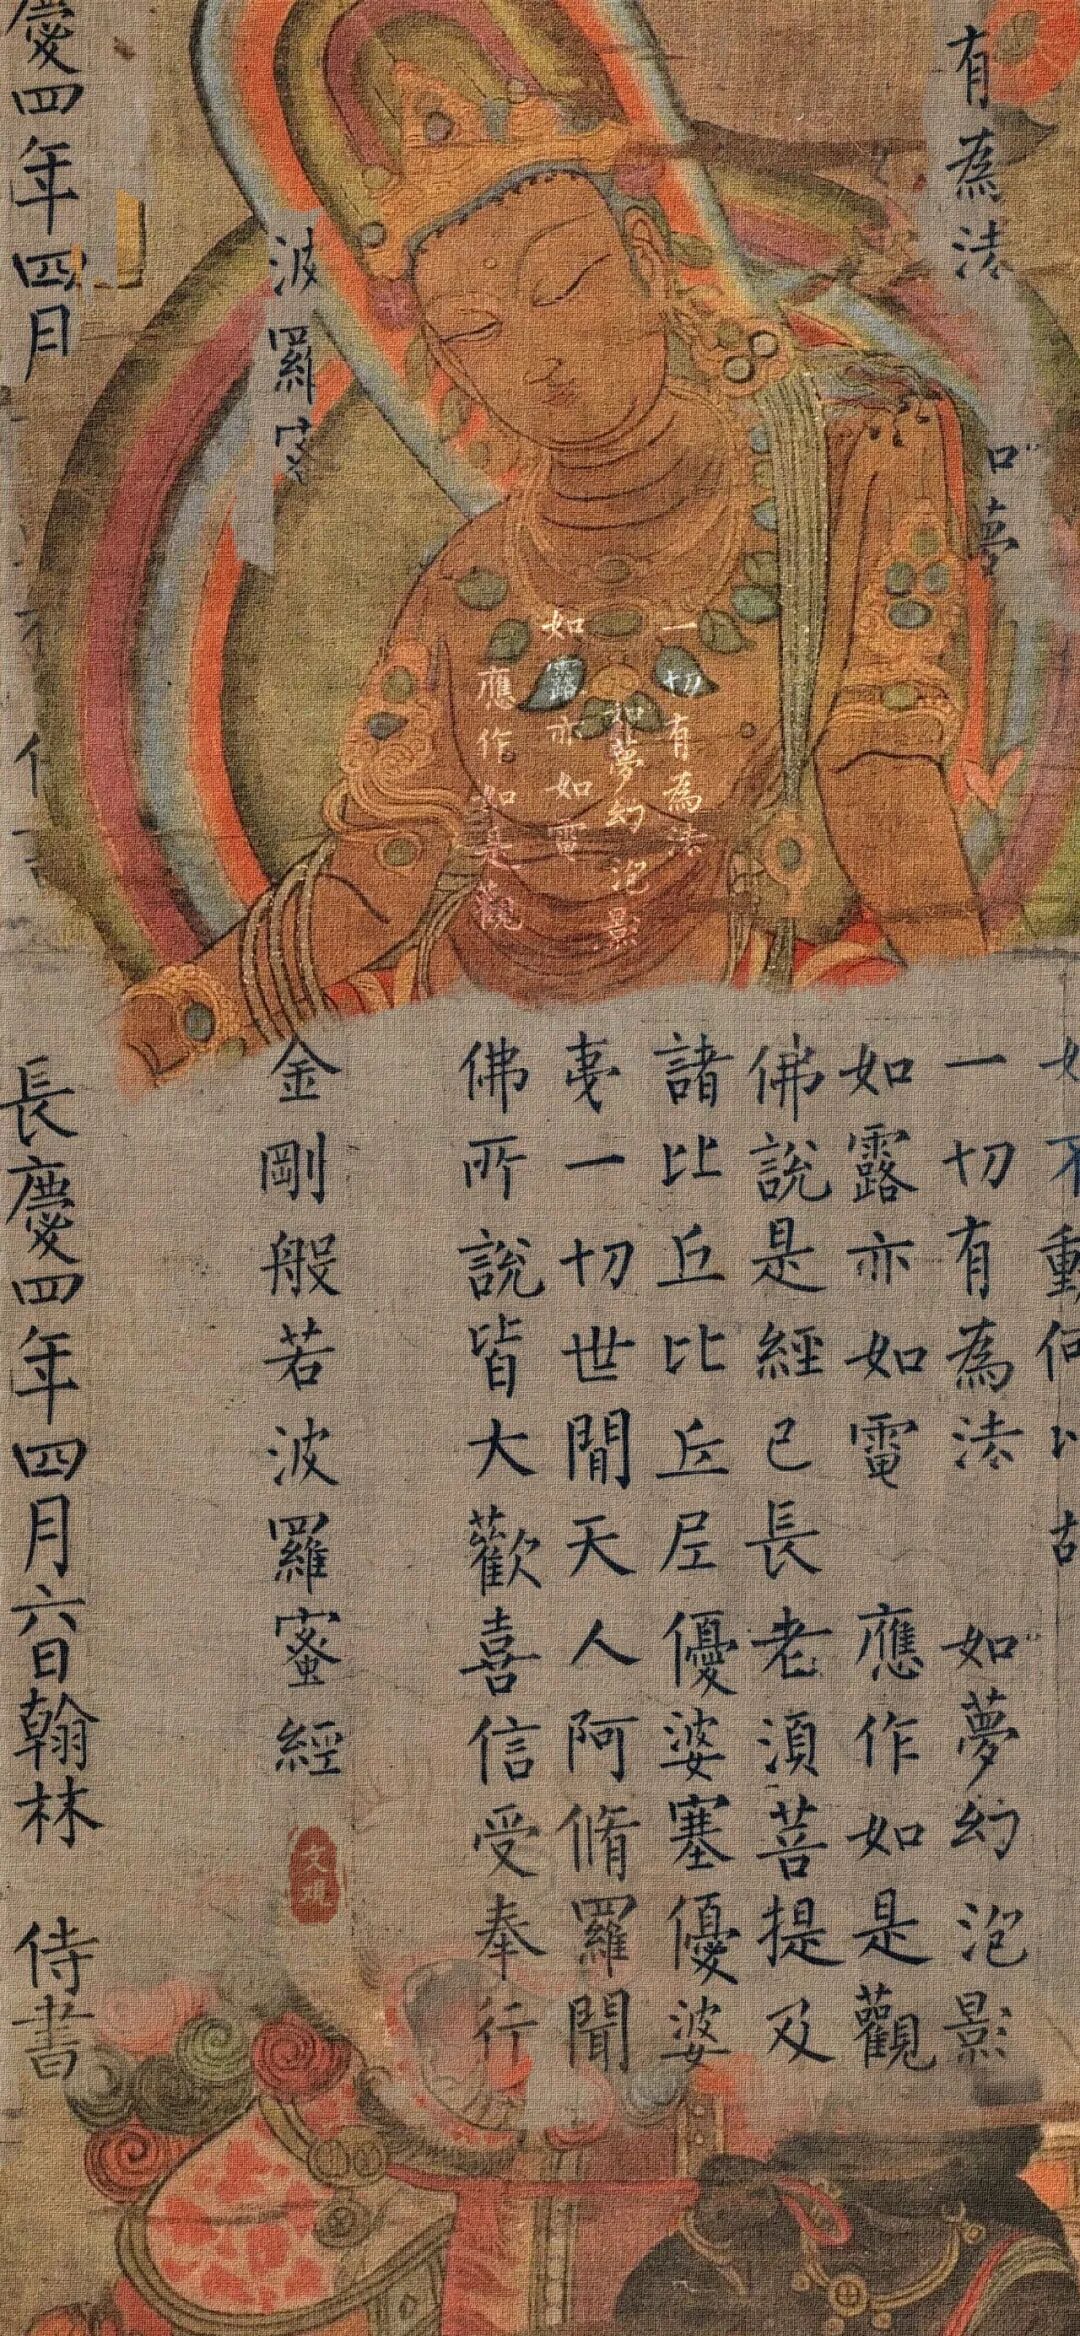 有為法
如夢
波羅蜜
慶四年四月
一切有為法
如夢幻泡影
如露亦如電
應作如是觀
如不動何以故
一切有為法 如夢幻泡影
如露亦如電 應作如是觀
佛說是經已長老須菩提及
諸比丘比丘尼優婆塞優婆
夷一切世間天人阿脩羅聞
佛所說皆大歡喜信受奉行
金剛般若波羅蜜經
長慶四年四月六日翰林 侍書